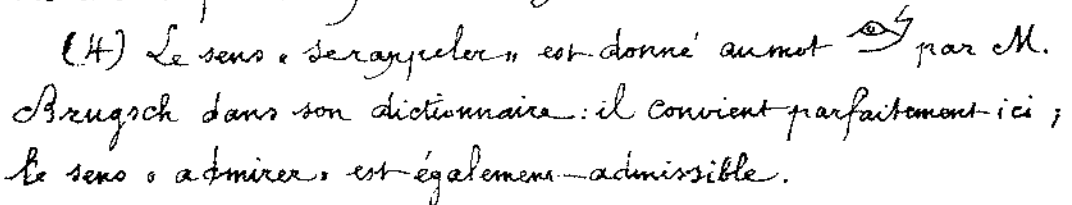 (4) Le sens « se rappeler » est donné au mot 𓁺 par M.
Brugsch dans son dictionnaire : il convient parfaitement ici ;
le sens « admirer » est également admissible.